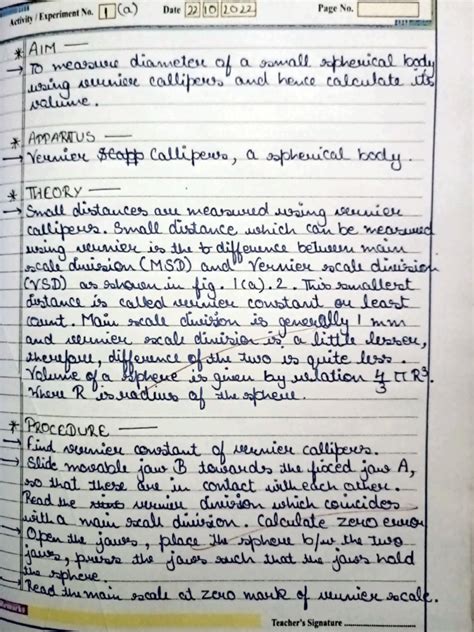 Activity / Experiment No. 1 (a) Date 22 10 2022 Page No.
* AIM —
→ To measure diameter of a small spherical body
using vernier callipers and hence calculate its
volume.
* APPARTUS —
→ Vernier Scapp Callipers, a spherical body.
* THEORY —
→ Small distances are measured using vernier
callipers. Small distance which can be measured
using vernier is the to difference between main
scale division (MSD) and Vernier scale division
(VSD) as shown in fig. 1(a).2. This smallest
distance is called vernier constant or least
count. Main scale division is generally 1 mm
and vernier scale division is a little lesser,
therefore, difference of the two is quite less.
Volume of a sphere is given by relation 4/3 π R³.
Where R is radius of the sphere.
* PROCEDURE —
→ Find vernier constant of vernier callipers.
→ Slide movable jaw B towards the fixed jaw A,
so that there are in contact with each other.
Read the vernier division which coincides
with a main scale division. Calculate zero error
→ Open the jaws, place the sphere b/w the two
jaws, press the jaws such that the jaws hold
the sphere
→ Read the main scale at zero mark of vernier scale.
Remarks
Teacher's Signature